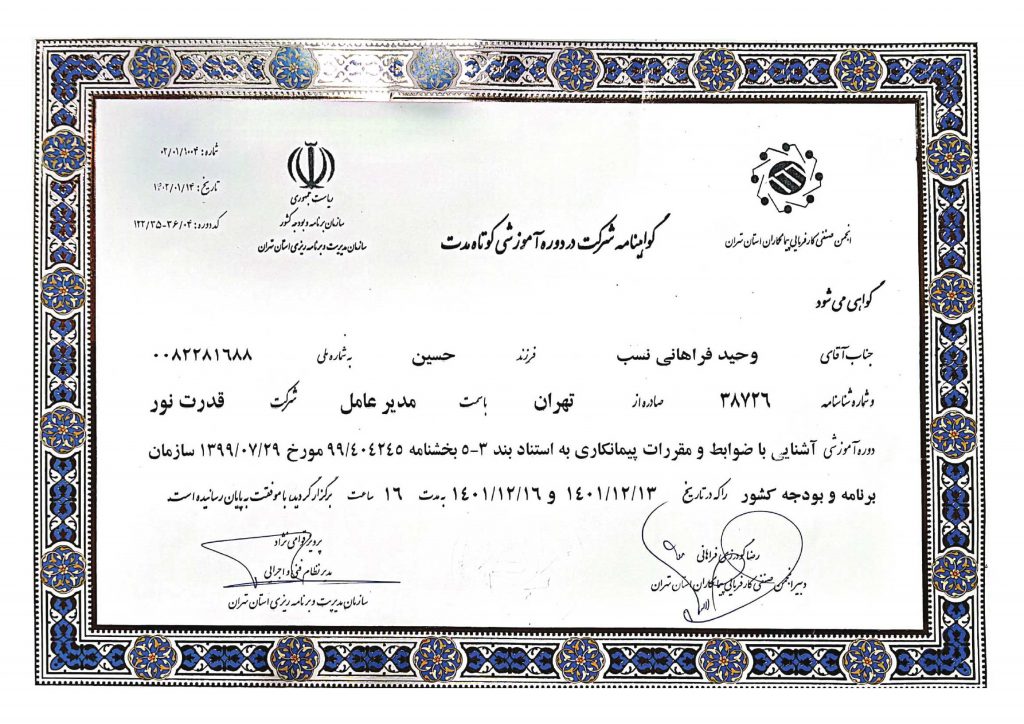 شماره: ۰۲/۰۱/۱۰۰۴
تاریخ: ۱۴۰۲/۰۱/۱۴
کد دوره: ۱۲۲/۳۵-۳۶/۰۴
ریاست جمهوری
سازمان برنامه و بودجه کشور
سازمان مدیریت و برنامه ریزی استان تهران
انجمن صنفی کارفرمایی پیمانکاران استان تهران
گواهینامه شرکت در دوره آموزشی کوتاه مدت
گواهی می شود
جناب آقای وحید فراهانی نسب فرزند حسین به شماره ملی ۰۰۸۲۲۸۱۶۸۸
و شماره شناسنامه ۳۸۷۲۶ صادره از تهران با سمت مدیر عامل شرکت قدرت نور
دوره آموزشی آشنایی با ضوابط و مقررات پیمانکاری به استناد بند ۳-۵ بخشنامه ۹۹/۴۰۴۲۴۵ مورخ ۱۳۹۹/۰۷/۲۹ سازمان
برنامه و بودجه کشور را که در تاریخ ۱۴۰۱/۱۲/۱۳ و ۱۴۰۱/۱۲/۱۶ به مدت ۱۶ ساعت برگزار گردید، با موفقیت به پایان رسانیده است.
رضا گودرزی فراهانی
دبیر انجمن صنفی کارفرمایی پیمانکاران استان تهران
پرویز قوامی نژاد
مدیر نظام فنی و اجرایی
سازمان مدیریت و برنامه ریزی استان تهران